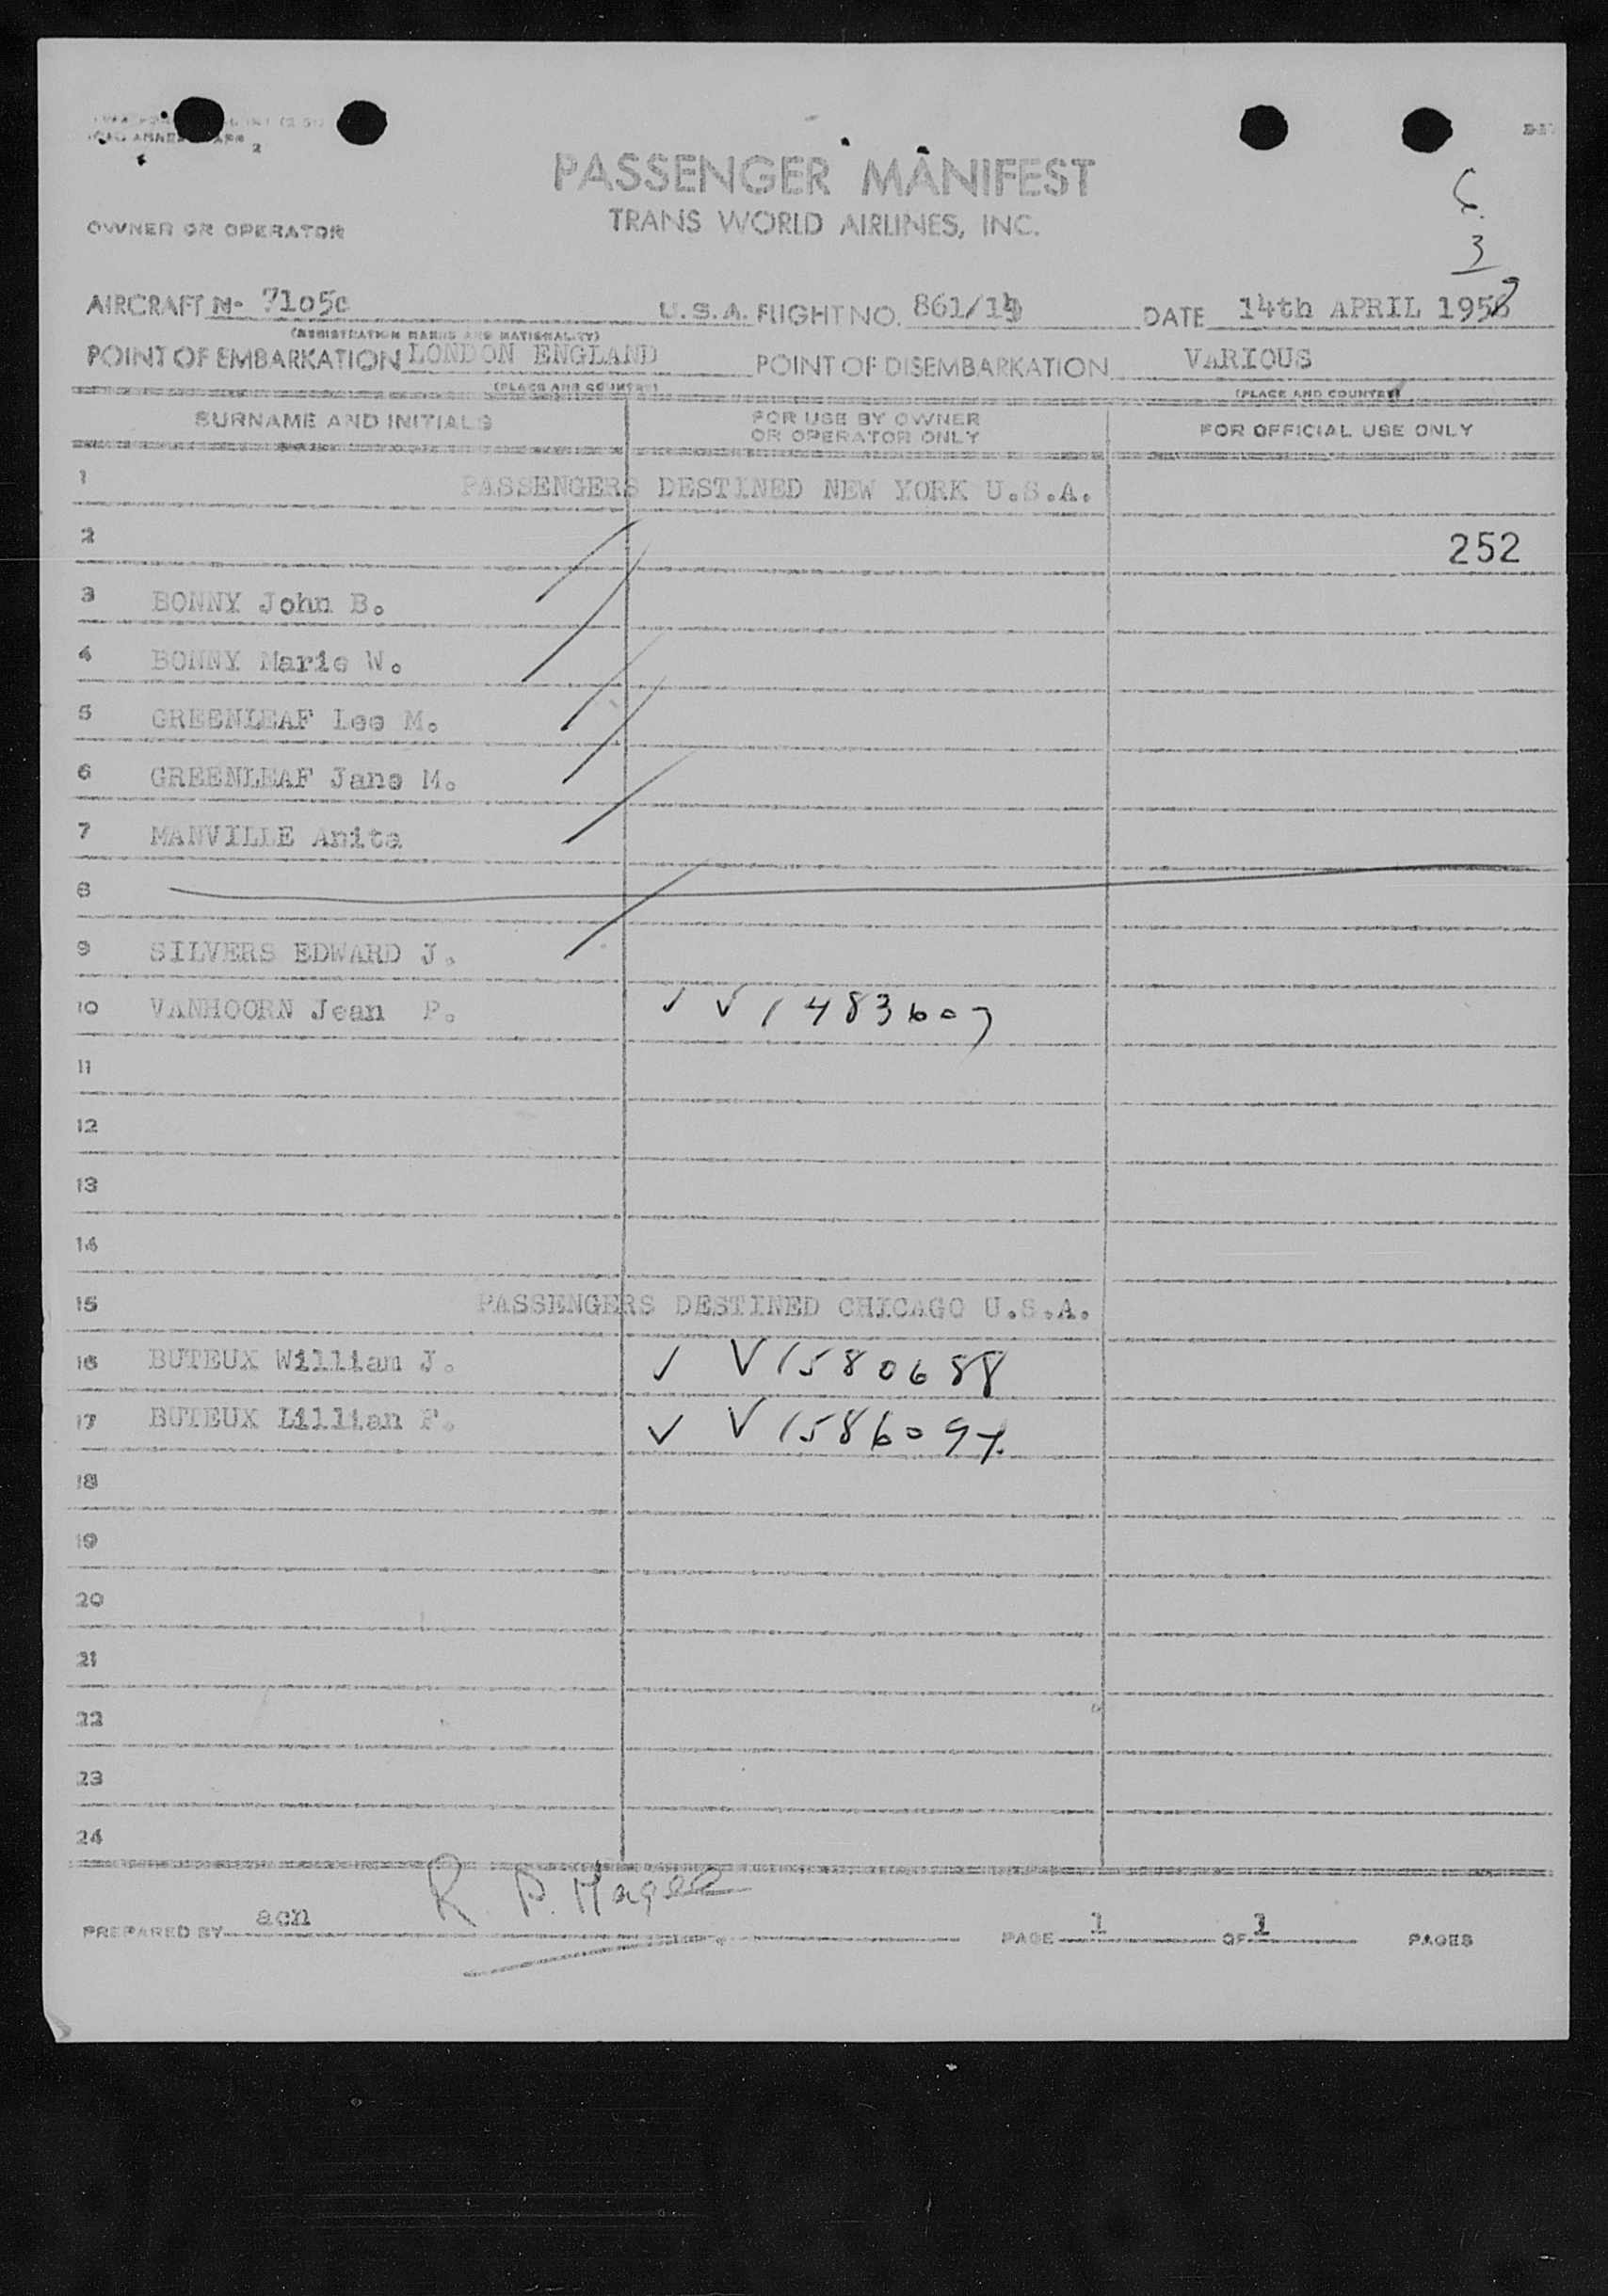 PASSENGER MANIFEST
TRANS WORLD AIRLINES, INC.
OWNER OR OPERATOR
3
AIRCRAFT N- 7105c U.S.A. FLIGHT NO. 861/14 DATE 14th APRIL 195
(REGISTRATION MARKS AND NATIONALITY)
POINT OF EMBARKATION LONDON ENGLAND POINT OF DISEMBARKATION VARIOUS
(PLACE AND COUNTRY) (PLACE AND COUNTRY)
SURNAME AND INITIALS FOR USE BY OWNER OR OPERATOR ONLY FOR OFFICIAL USE ONLY
1 PASSENGERS DESTINED NEW YORK U.S.A.
2 252
3 BONNY John B.
4 BONNY Marie W.
5 GREENLEAF Lee M.
6 GREENLEAF Jane M.
7 MANVILLE Anita
8
9 SILVERS EDWARD J.
10 VANHOORN Jean P. ✓ V 1483607
11
12
13
14
15 PASSENGERS DESTINED CHICAGO U.S.A.
16 BUTEUX William J. ✓ V 1580688
17 BUTEUX Lillian F. ✓ V 1586097
18
19
20
21
22
23
24
R P. Magee
PREPARED BY acn PAGE 1 OF 1 PAGES